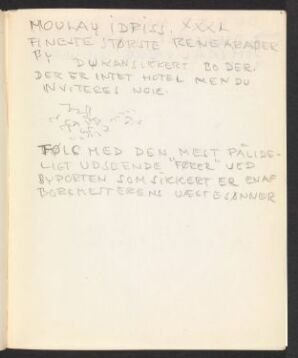 MOULAY IDRISS. XXXX
FINESTE STØRSTE RENE ARABER
BY DU KAN SIKKERT BO DER.
DER ER INTET HOTEL MEN DU
INVITERES NOK.
FØLG MED DEN MEST PÅLIDE-
LIGT UDSEENDE "FØRER" VED
BYPORTEN SOM SIKKERT ER EN AF
BORGMESTERENS SØNNER